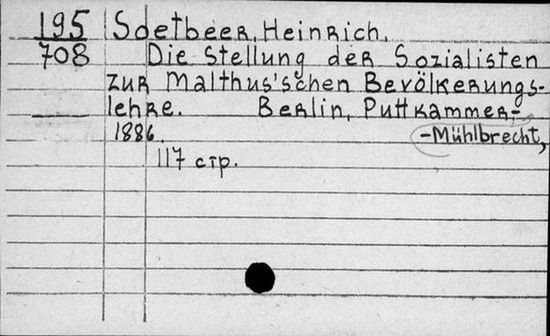 195 Soetbeer, Heinrich.
708 Die Stellung der Sozialisten
zur Malthus'schen Bevölkerungs-
lehre. Berlin, Puttkammer-
1886. -Mühlbrecht,
117 стр.